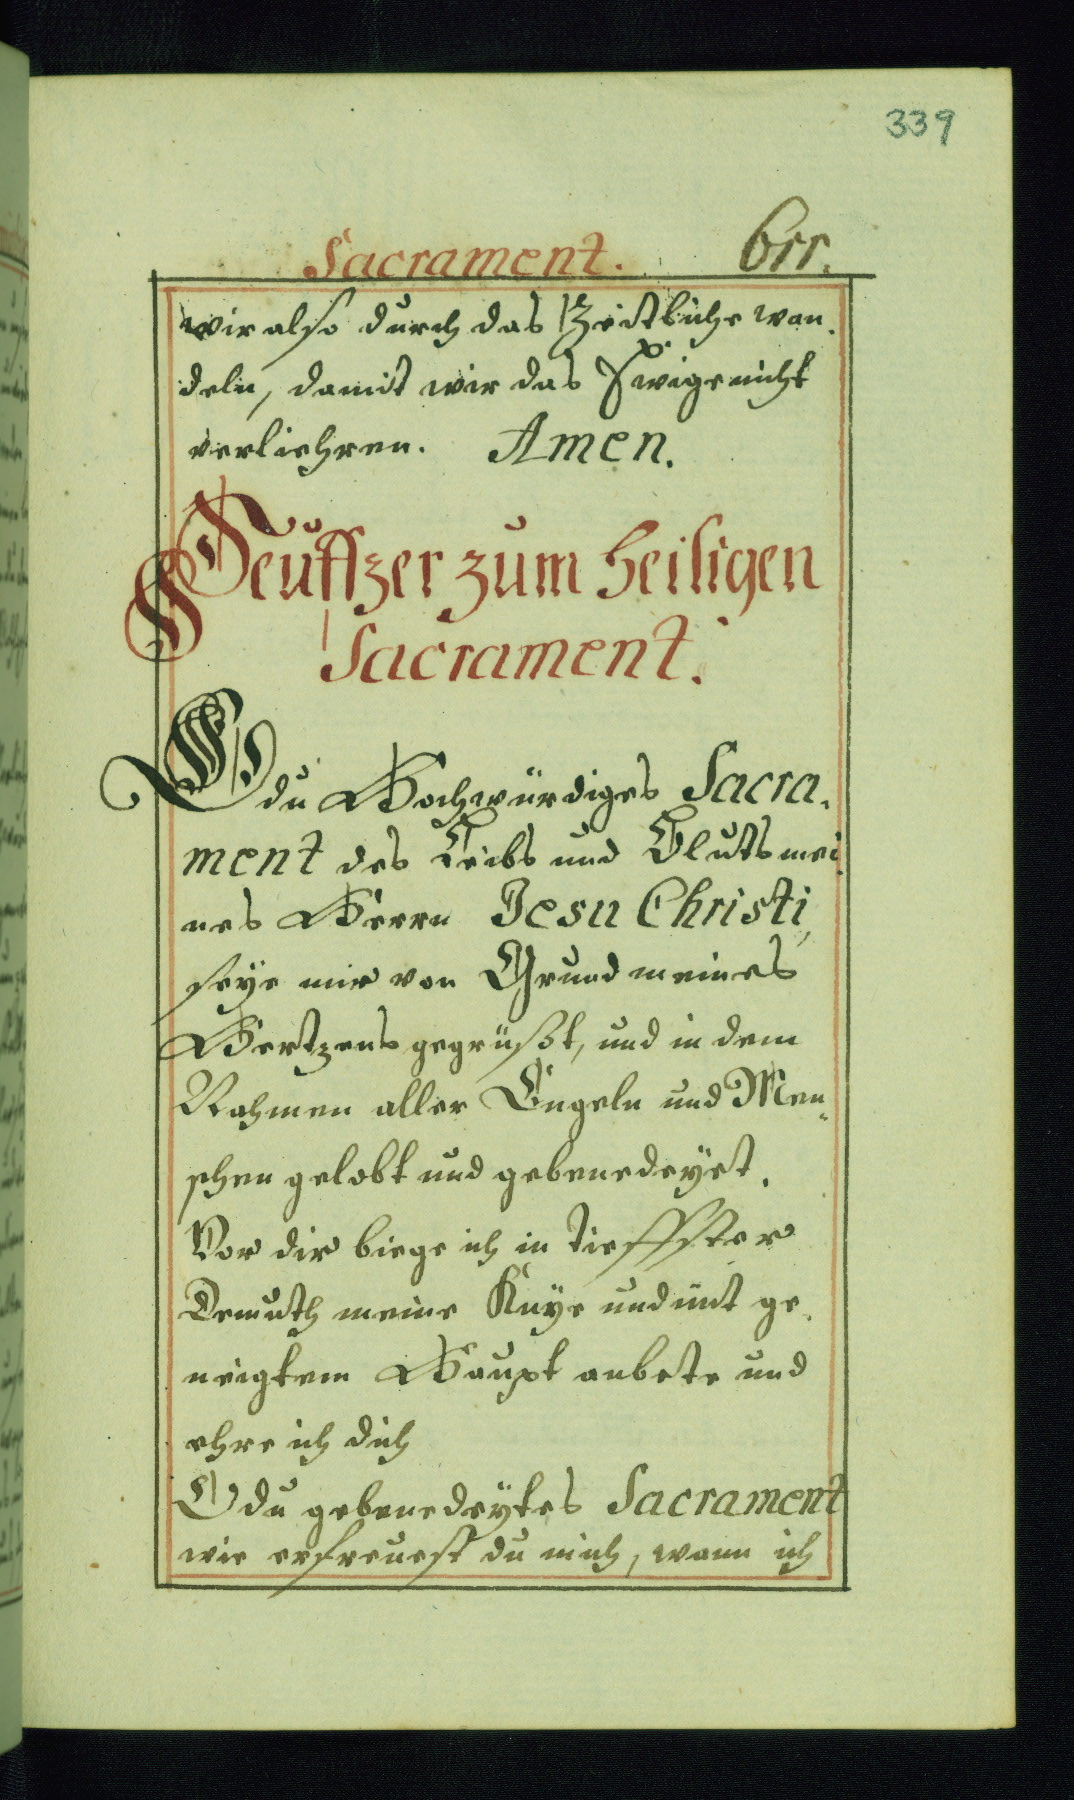 339
Sacrament. 655.
wir also durch das Zeitliche wan.
deln, damit wir das Ewige nicht
verliehren. Amen.
Seuffzer zum heiligen
Sacrament.
O du Hochwürdiges Sacra.
ment des Leibs und Bluts mei.
nes Herrn Jesu Christi,
seye mir von Grund meines
Hertzens gegrüßt, und in dem
Nahmen aller Engeln und Men„
schen gelobt und gebenedeyet.
Vor dir biege ich in tieffster
Demuth meine Knÿe und mit ge.
neigtem Haupt anbete und
ehre ich dich
O du gebenedeytes Sacrament
wie erfreuest du mich, wann ich